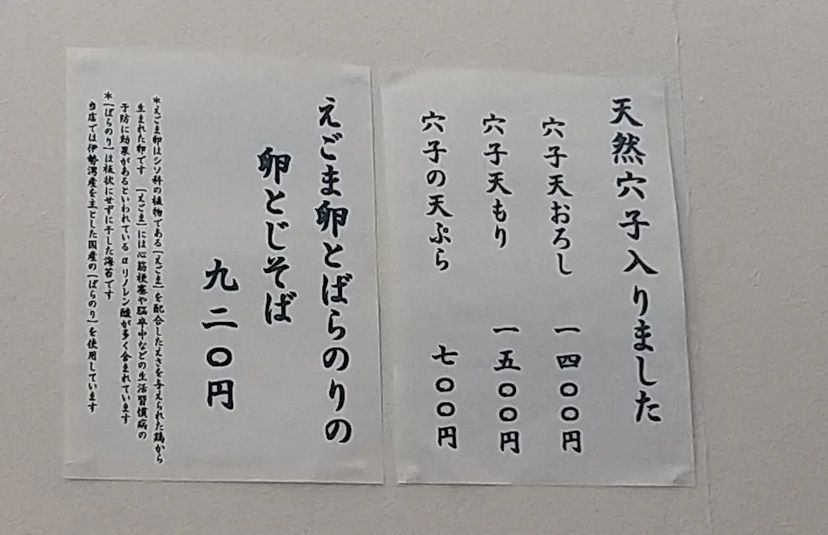 天然穴子入りました
穴子天おろし 一四〇〇円
穴子天もり 一五〇〇円
穴子の天ぷら 七〇〇円
えごま卵とばらのりの
卵とじそば
九二〇円
*えごま卵はシソ科の植物である「えごま」を配合したえさを与えられた鶏から
生まれた卵です 「えごま」には心筋梗塞や脳卒中などの生活習慣病の
予防に効果があるといわれているαリノレン酸が多く含まれています
*「ばらのり」は板状にせずに干した海苔です
当店では伊勢湾産を主とした国産の「ばらのり」を使用しています